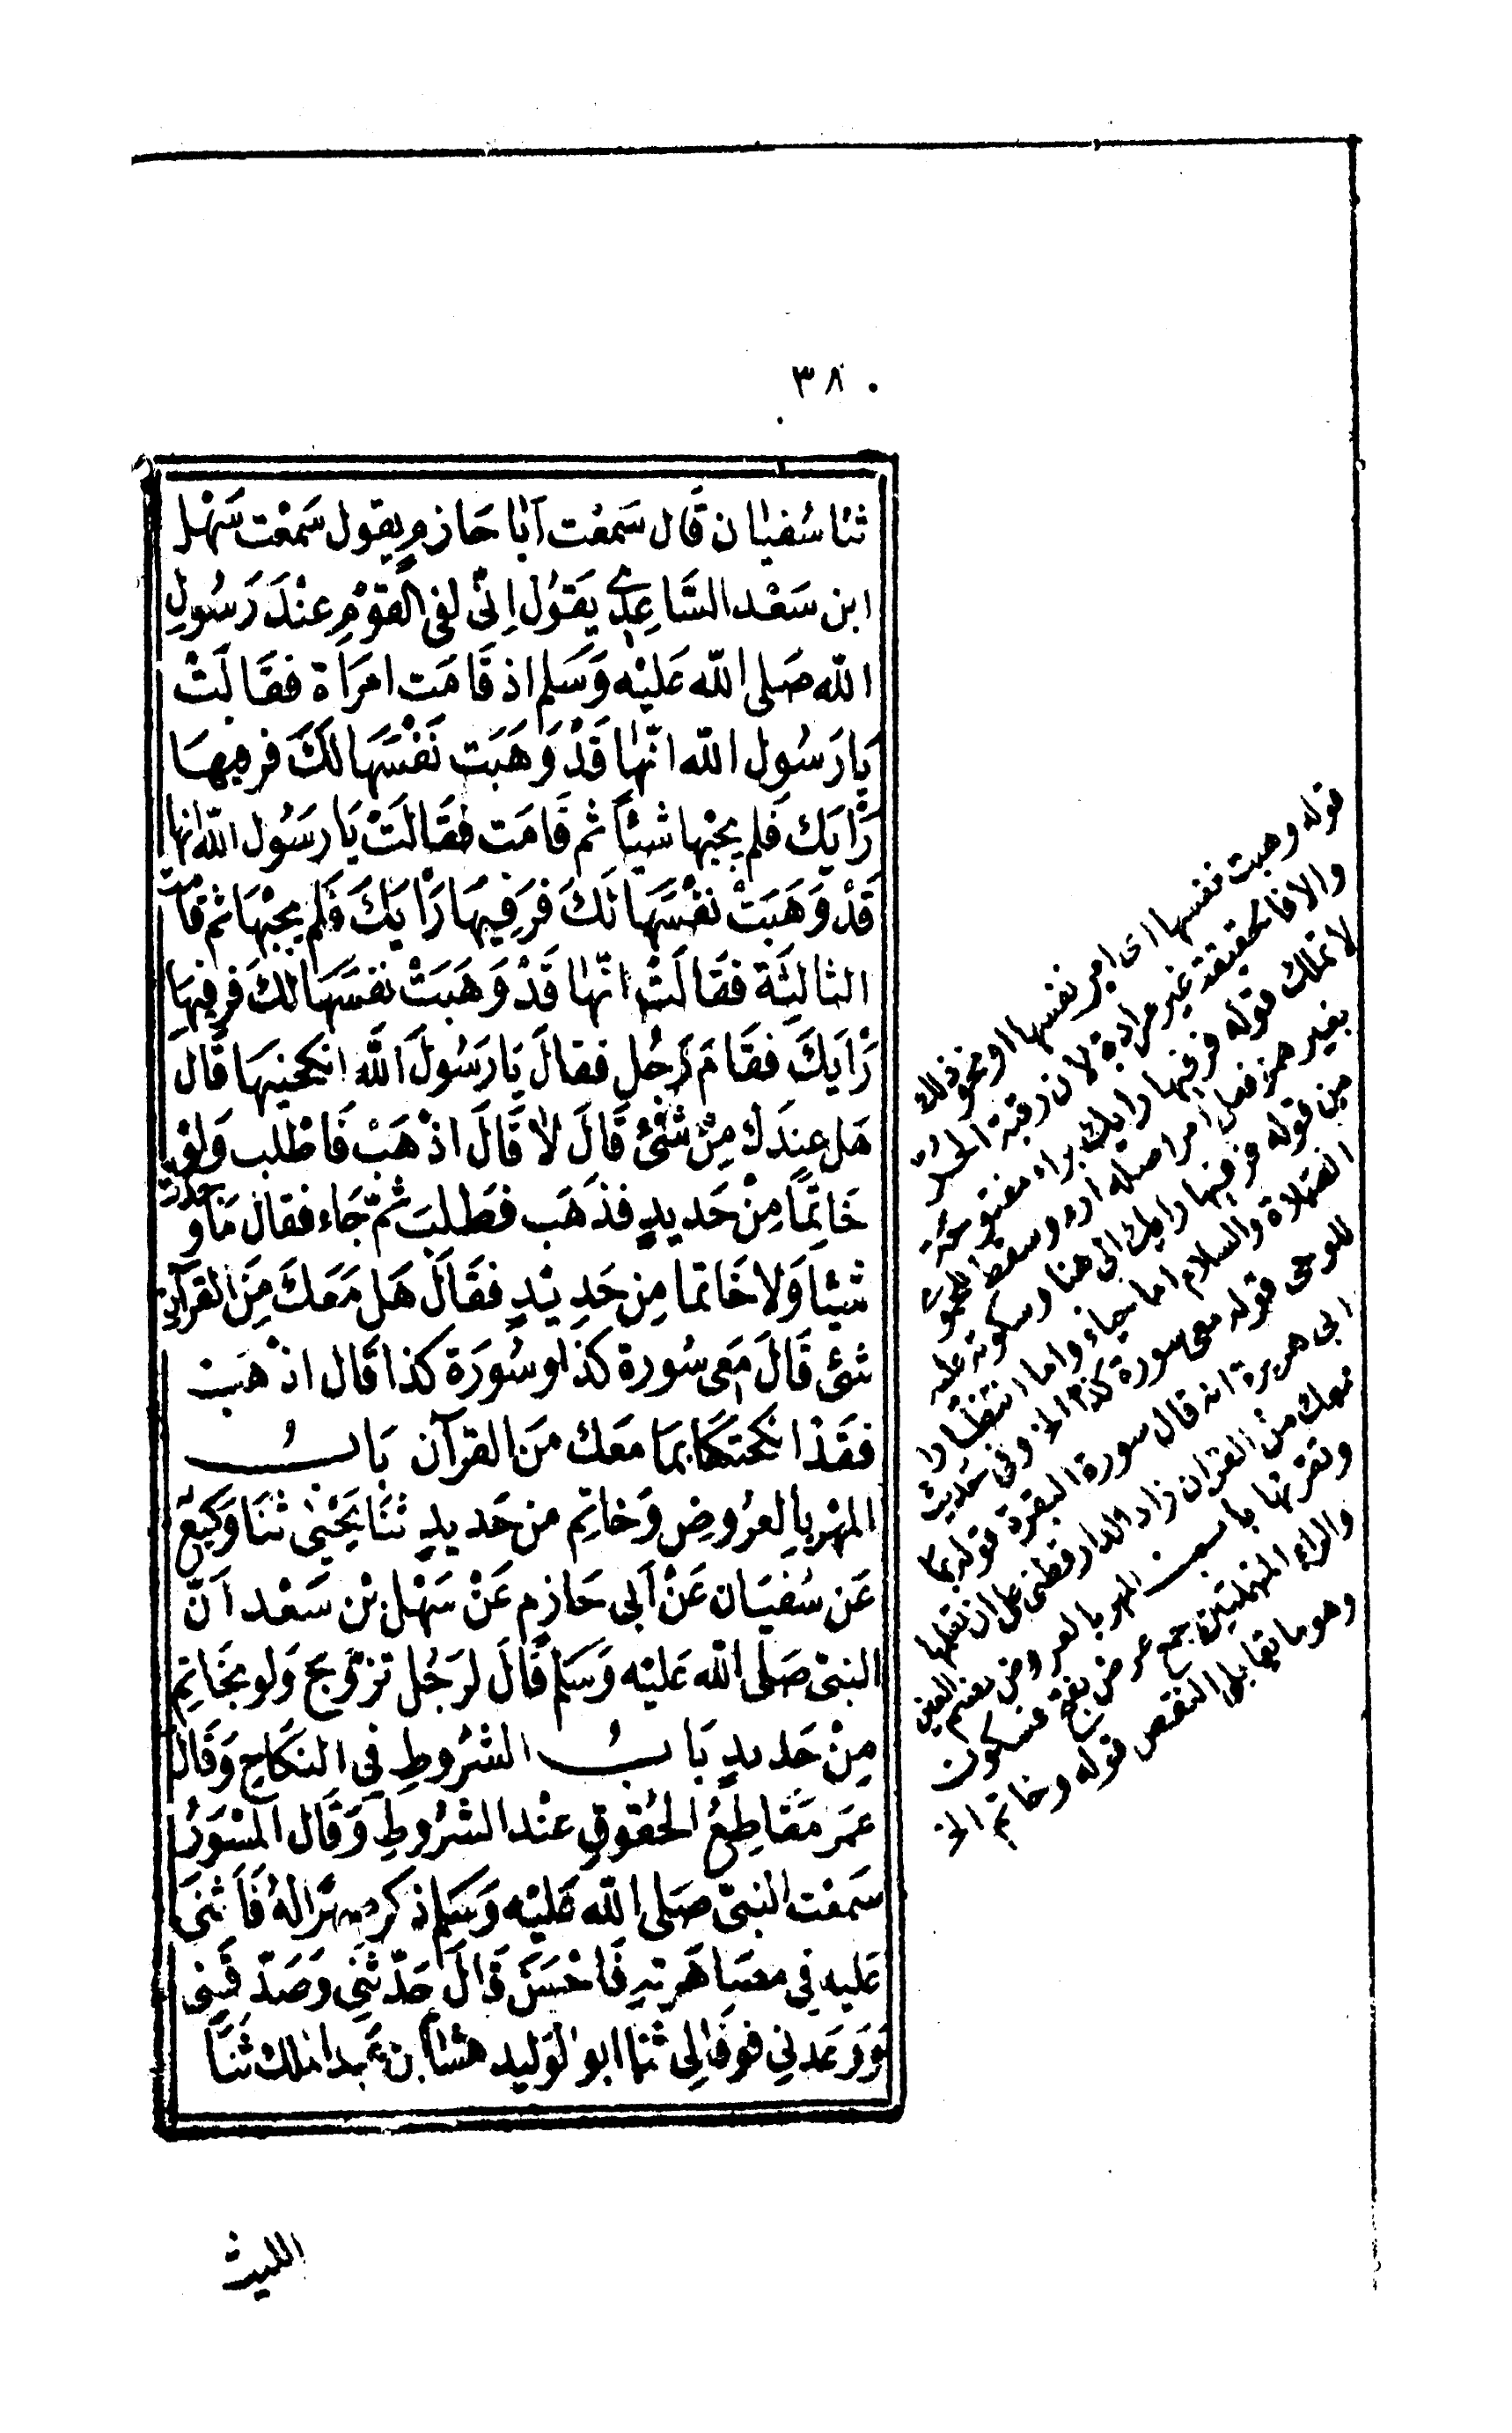 ٣٨٠
ثنا سُفيٰان قَال سَمعْت اَبٰا حَازمٍ يقول سَمعْت سَهْل
ابن سَعْد السَّاعِدِى يَقوُل اِنّى لفى القَوْمِ عنْدَ رَسُولِ
الله صَلى الله عَليْه وَسَلم اذ قَامَت امَرَاة فقَالَتْ
يا رَسُول الله انّهٰا قَدْ وَهَبَت نَفْسَهَا لكَ فرفيهَا
رَأْيَك فَلم يجبْها شيْأً ثم قَامَت فقَالَتْ يَا رسَوُل الله انها
قَدْ وَهَبَتْ نفْسَهَا لَكَ فرَفِيهَا رَأْيَكَ فَلم يجبْهَا ثم قامت
الثالِثَة فقَالَتْ انّهٰا قَدْ وَهَبَتْ نفسَهَا لك فرفِيهَا
رَأْيَكَ فقَامَ رَجُل فقالَ يَا رَسُولَ الله انكحْنيهَا قَالَ
هَل عِندَك مِنْ شئ قَالَ لاٰ قَالَ اذْهَبْ فَاطْلب وَلوْ
خَاتمًا مِنْ حَديدٍ فذهَب فطَلبَ ثمّ جَاء فقال مَا وَجدْت
شيْأً وَلا خَاتما مِن حَدِيْدٍ فقَالَ هَل مَعَكَ مِنَ القرآنِ
شئ قَالَ مَعى سُورة كذا وسُورَة كذا قَال اذْهَبْ
فقَدْ انكحتكهَا بمَا مَعَك مَن القرآن بَابُ
المهْر بِالعرُوضِ وَخاتِم من حَديدٍ ثنَا يَحْيٰى ثنَا وَكيعٌ
عَن سُفيَان عَنْ اَبى حَازِم عَنْ سَهْل بْن سَعْد اَنّ
النبىّ صَلى الله عَليْه وَسَلم قَالَ لرَجُل تزَوّج وَلو بخَاتِمٍ
مِنْ حَديدٍ بَابُ الشرُوطِ فى النكَاحِ وَقَال
عمَر مَقَاطِعُ الحُقوقِ عنْد الشرُوطِ وَقَال المسْوَرُ
سَمعْت النبىّ صَلى الله عَليْه وَسَلم ذكر صهْرًا لهُ فَاَثنىَ
عَليه فى مصَاهَرتهِ فَاَحْسَنَ قَالَ حَدّثنِى وَصَدّقَنِى
وَوَعَدنى فوفَا لِى ثنا ابو الوَليد هشام بن عَبد الملك ثنَا
الليث
قوله وهبت نفسها اى امر نفسها او نحو ذلك
والا فالحقيقة غير مرادة لان رقبة الحر
لا تملك قوله فرفيها رايك براء مفتوحة
بغير همز فعل امر اصله ارء وسقط للحموى
من قوله فرفيها رايك الى هنا وسكوته عليه
الصلاة والسلام اما حياء واما انتظارا
للوحى قوله معى سورة كذا الخ وفى حديث
ابى هريرة انه قال سورة البقرة قوله بما
معك من القران زاد الدارقطنى على ان تعلمها
وتقرئها باب المهر بالعروض بضم العين
والراء المهملتين جمع عرض بفتح فسكون
وهو ما يقابل النقد قوله وخاتم الخ